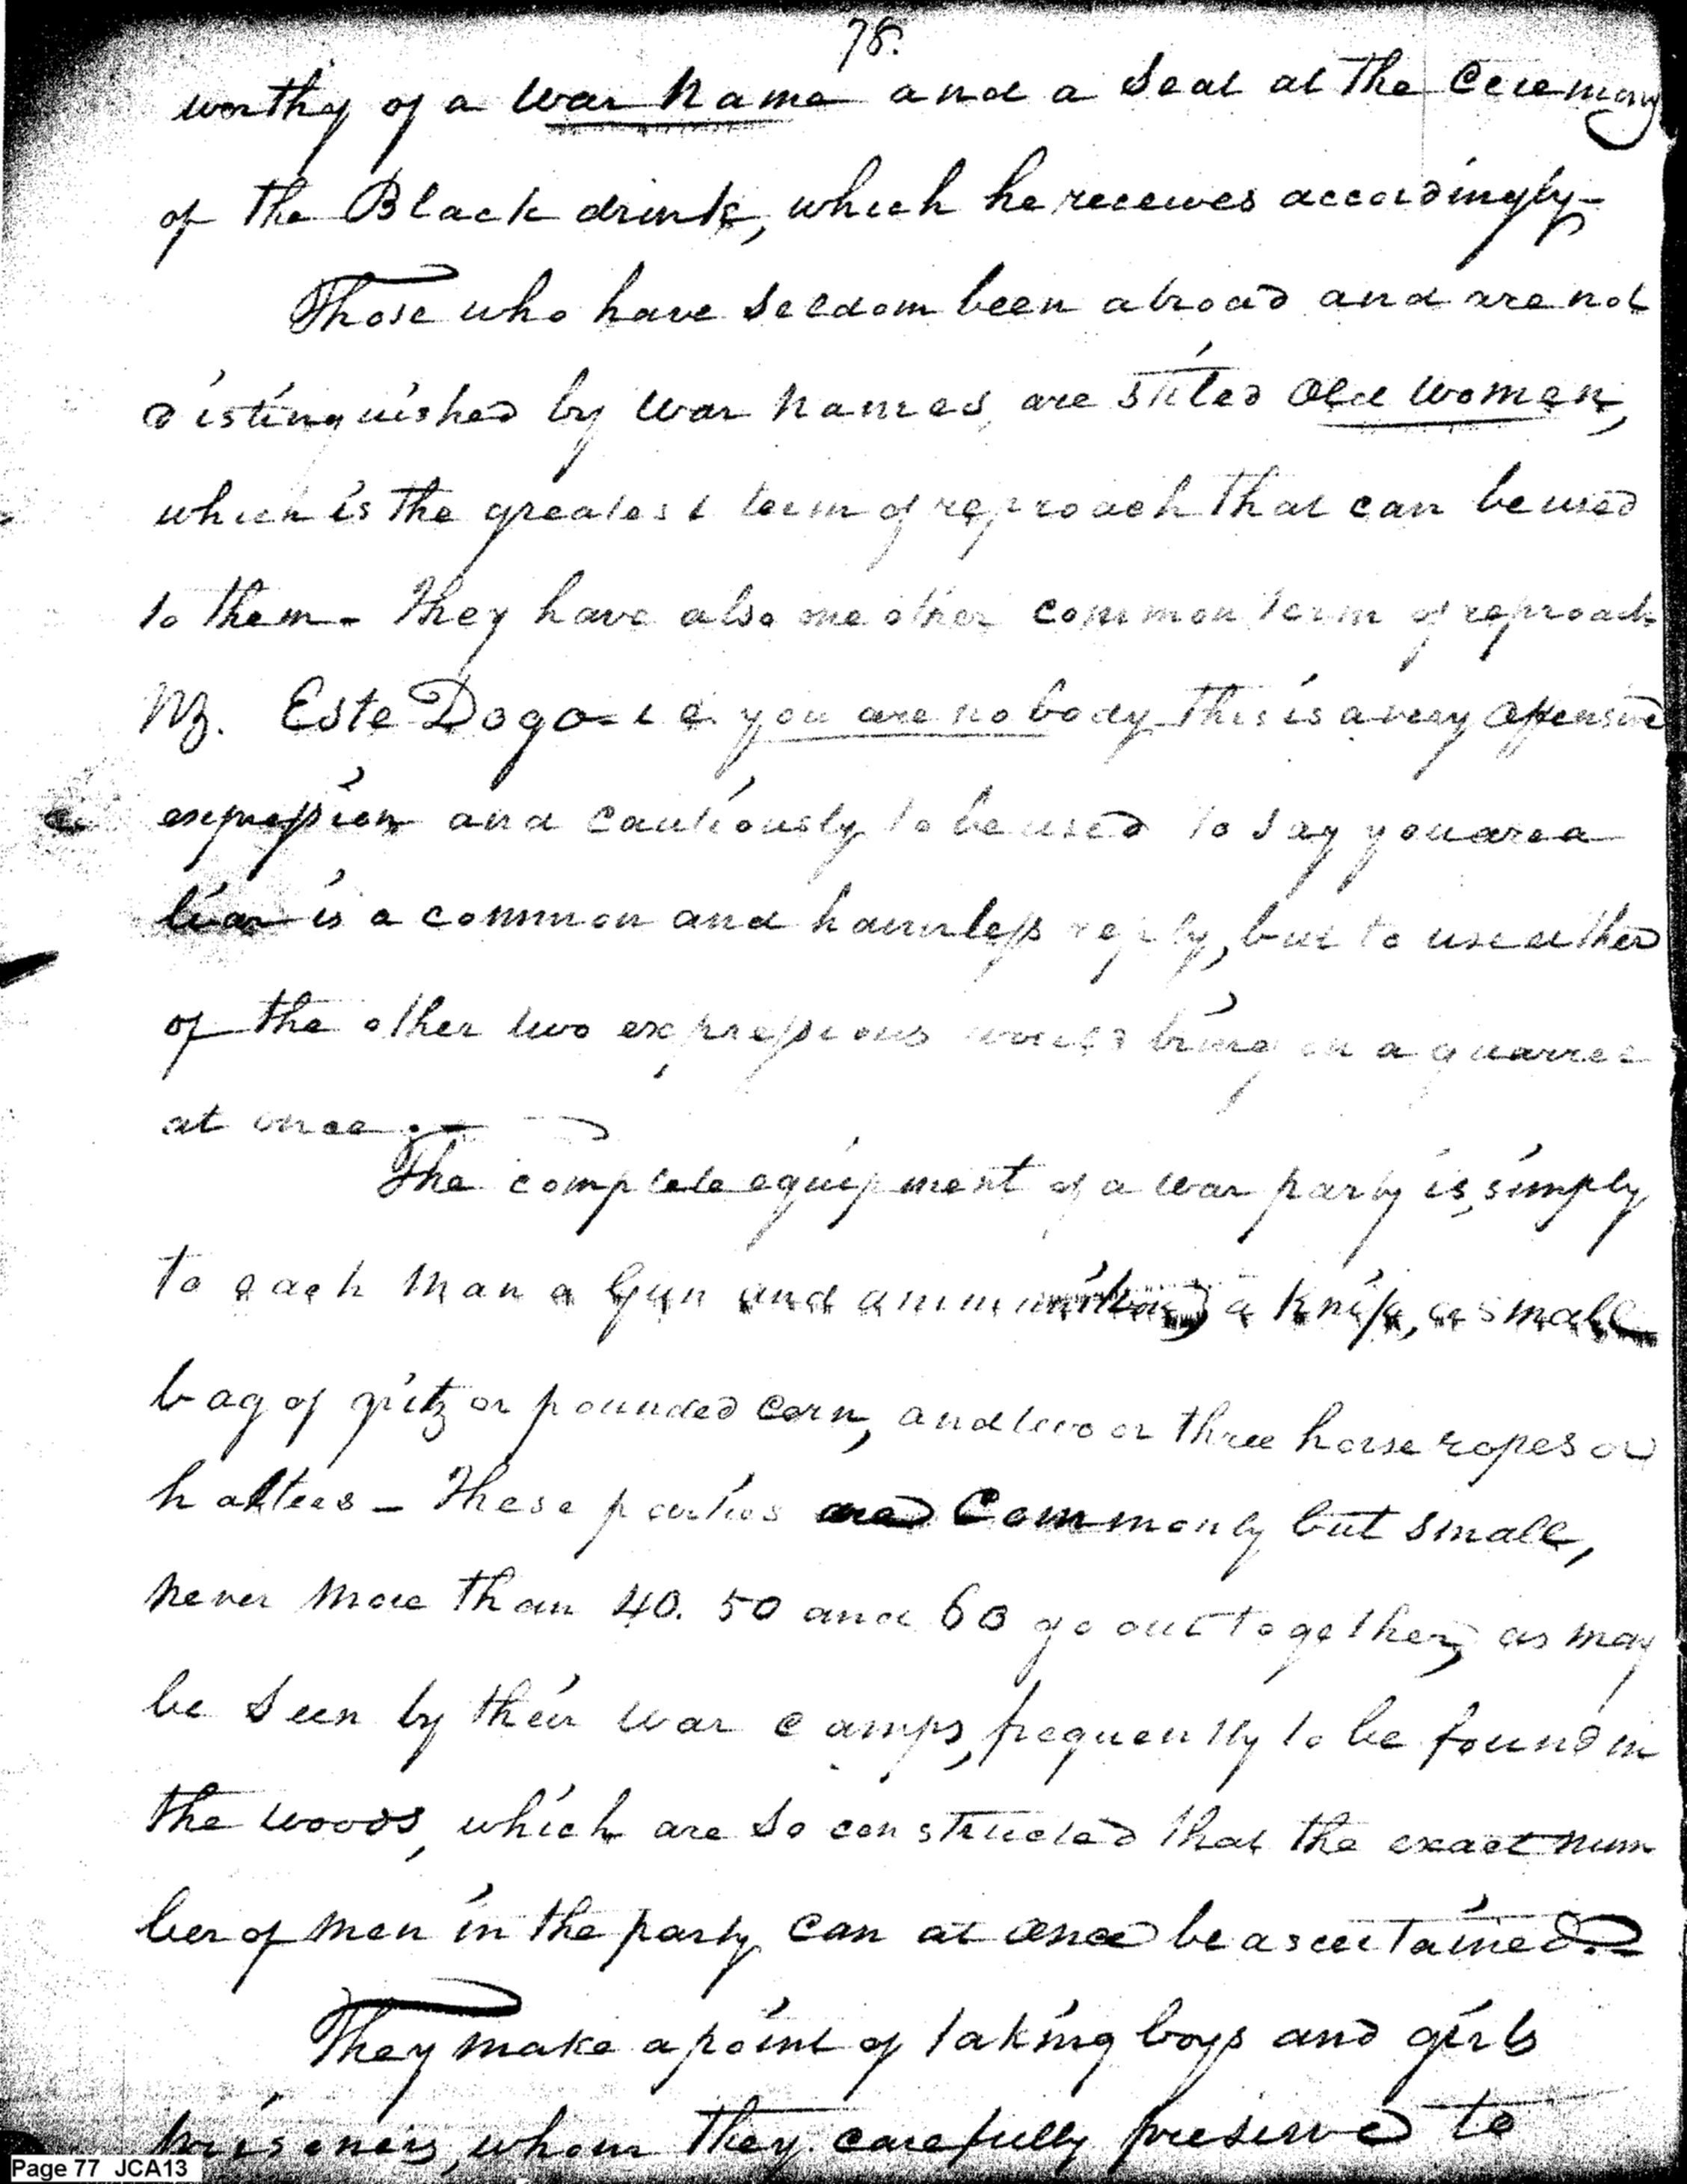 78.
worthy of a War Name and a Seat at the Ceremony
of the Black drink, which he receives accordingly-
Those who have Seldom been abroad and are not
distinguished by War Names, are stiled Old Women,
which is the greatest term of reproach that can be used
to them - They have also one other common term of reproach
Viz. Este Dogo - i e you are no body this is a very offensive
expression and cautiously to be used to say you are a
liar is a common and harmless reply, but to use either
of the other two expressions would bring on a quarrel
at once. -
The complete equipment of a war party is, simply
to each man a Gun and ammunition, a Knife, a small
bag of gritz or pounded Corn, and two or three horse ropes or
halters - These parties are Commonly but small,
never more than 40. 50 and 60 go out together, as may
be seen by their war camps, frequently to be found in
the woods, which are so constructed that the exact num
ber of men in the party can at once be ascertained. -
They make a point of taking boys and girls
prisoners, whom they carefully preserve to
Page 77 JCA13